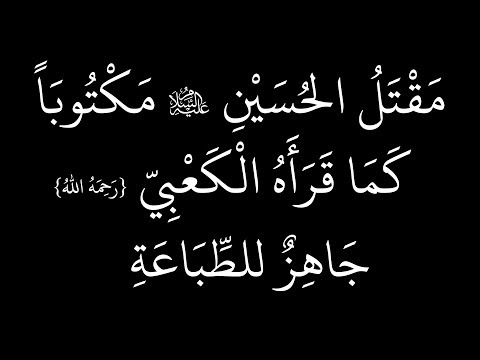 مَقْتَلُ الحُسَيْنِ عَلَيْهِ السَّلَامُ مَكْتُوبَاً
كَمَا قَرَأَهُ الْكَعْبِيّ {رَحِمَهُ اللهُ}
جَاهِزٌ للطِّبَاعَةِ